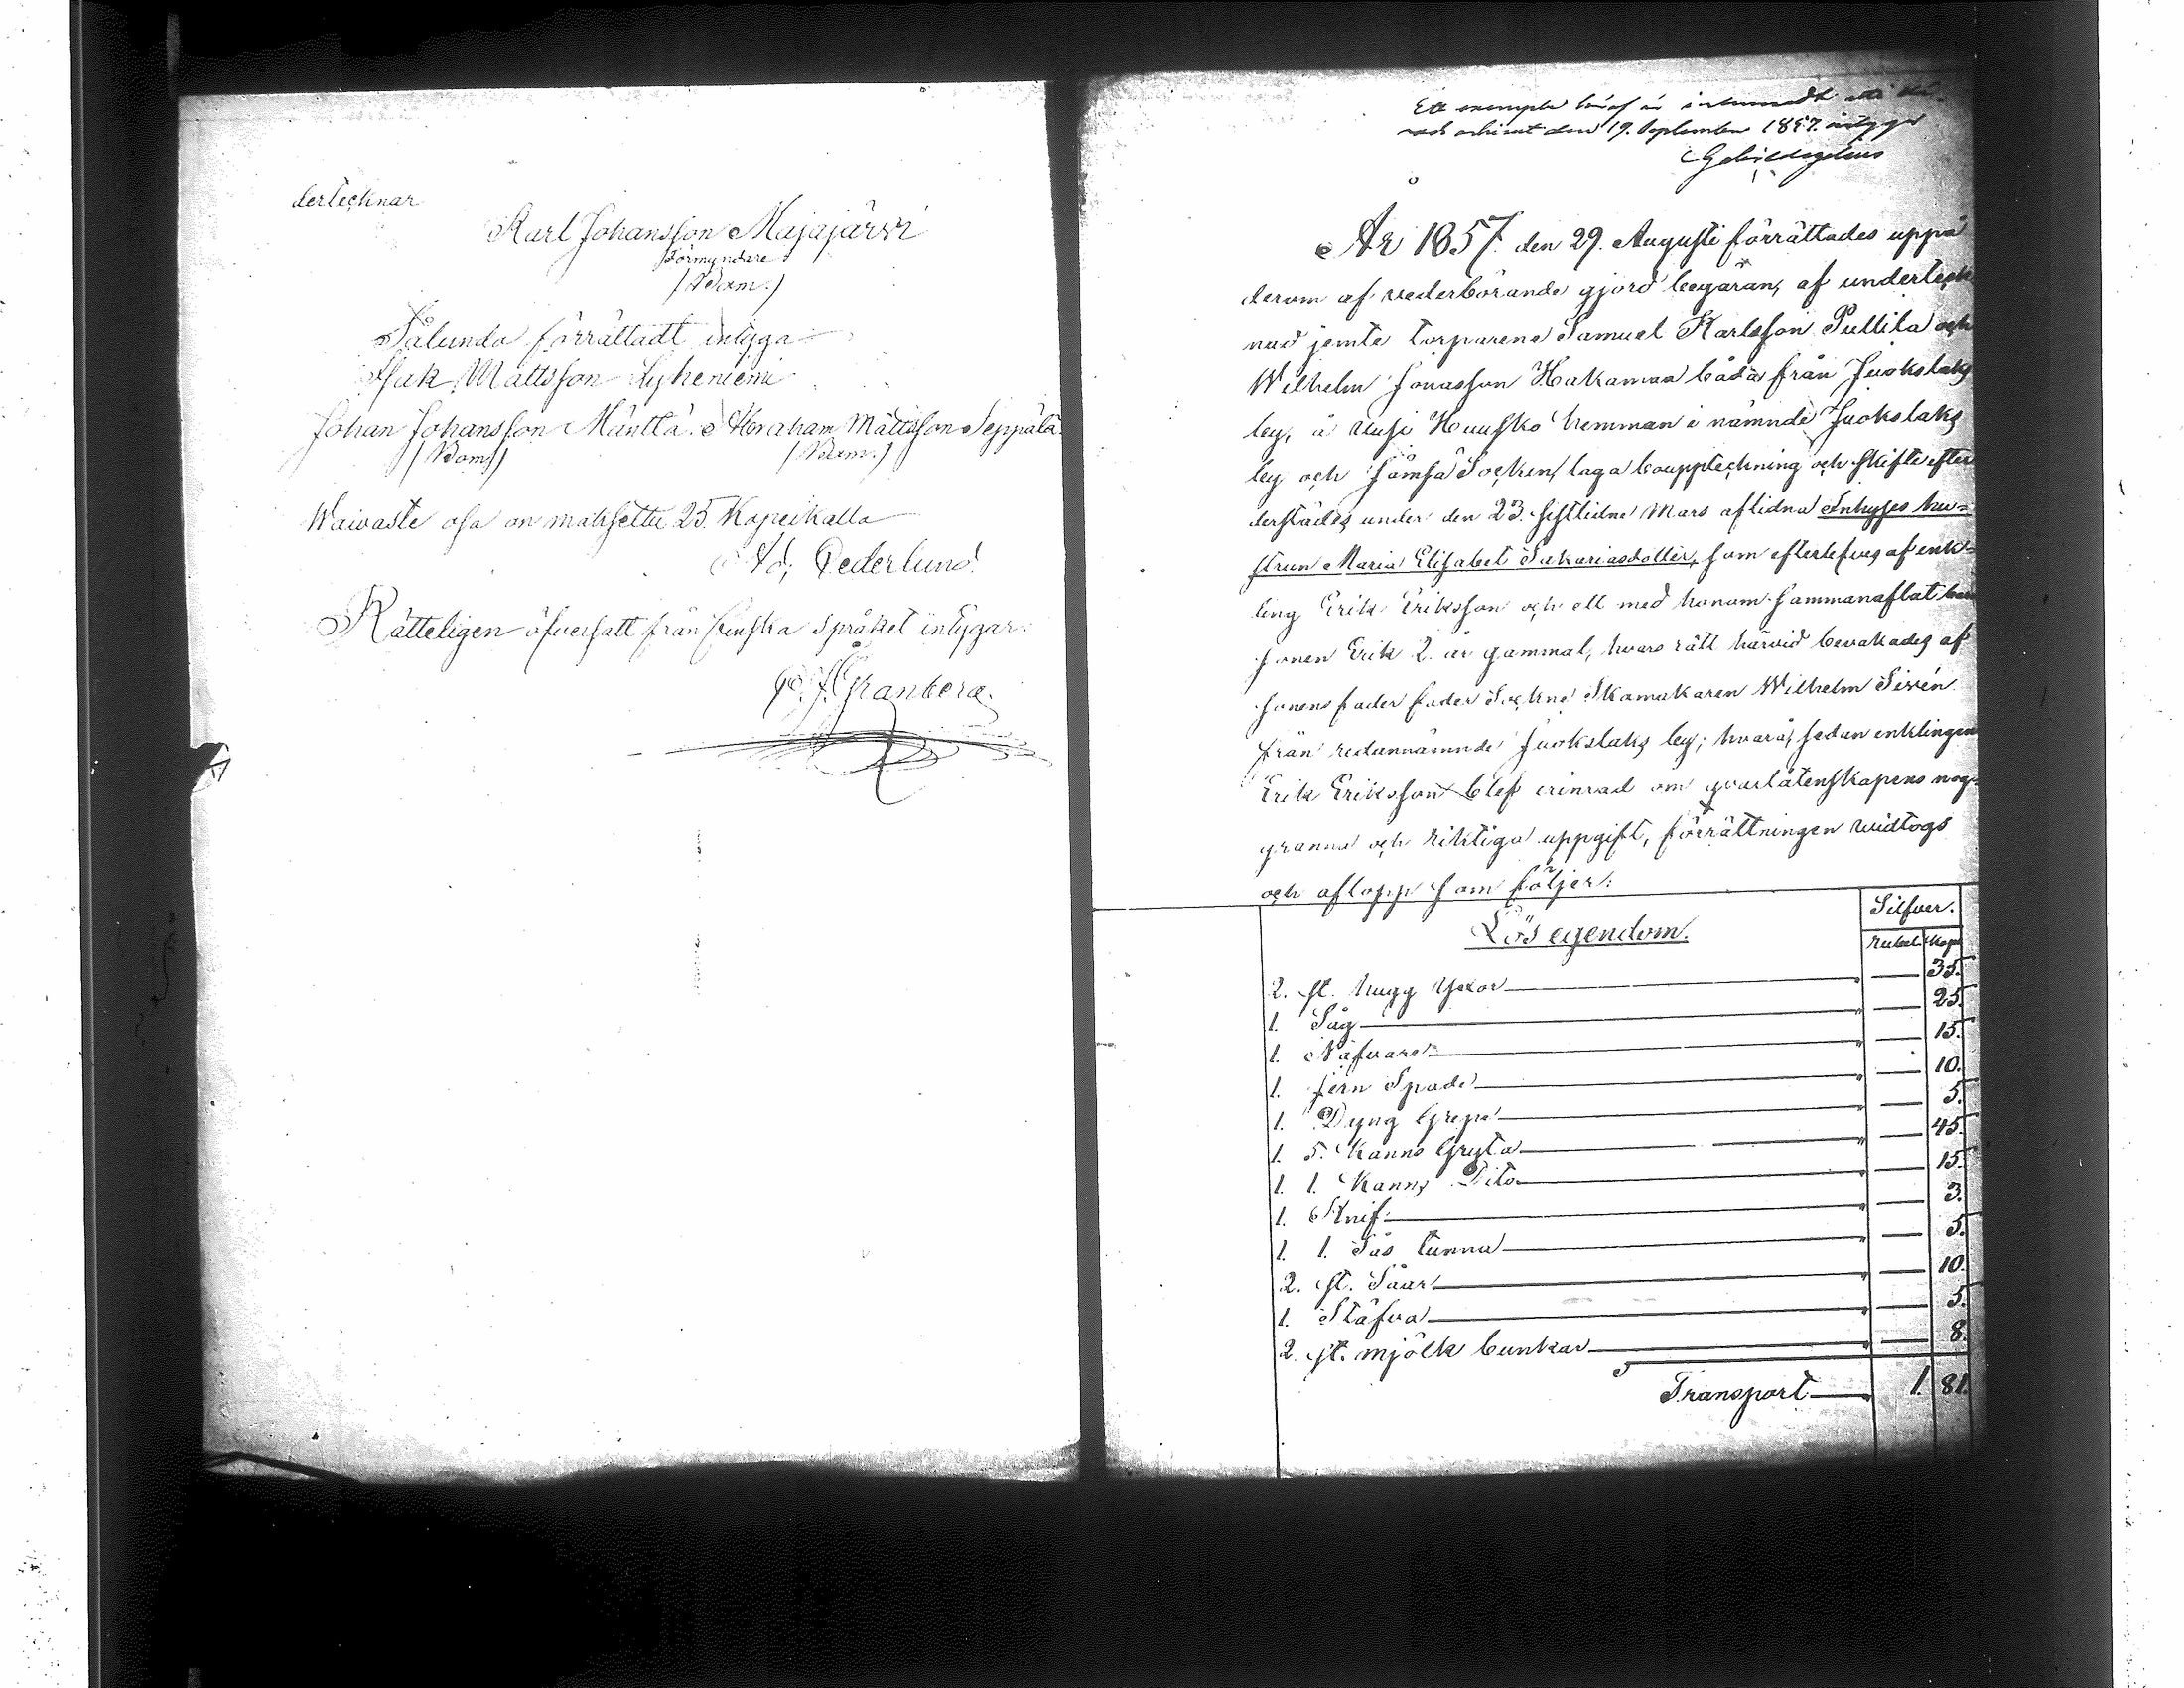 dertecknar
Karl Johansson Majajärvi
Förmyndare
/Bom./
Sålunda förrättadt intyga
Isak Mattsson Syheniemi
Johan Johansson Mänttä. Abraham Mattsson Seppälä
/Bom/ /Bom./
Waivaste osa on maksettu 25. Kopeikalla
Ad, Cederlund
Rätteligen öfversatt från finska språket intygar:
Granberg.
Ett exemplar häraf är
den 19. September 1857.
År 1857 den 29. Augusti förrättades uppå
derom af vederbörande gjord begäran, af underteck
nad jemte torparene Samuel Karlsson Puttila och
Wilhelm Jonasson Hakamaa båda från Juokslaks
by, å Uusi Huusko hemman i nämnde Juokslaks
by och Jämsä Socken, laga bouppteckning och skifte efter
derstädes under den 23. sistlidne Mars aflidna Inhyses hu=
strun Maria Elisabet Sakariasdotter, som efterlefves af enk=
ling Erik Eriksson och ett med honom sammanaflat barn
sonen Erik 2. år gammal, hvars rätt härvid bevakades af
sonens fader fader Sockne Skomakaren Wilhelm Sirén
från redannämnde Juokslaks by; hvarå, sedan enklingen
Erik Eriksson blef erinrad om qvarlåtenskapens nog=
granna och riktiga uppgift, förrättningen vidtogs
och aflopp som följer:
Lös egendom. Silfver.
Rubel. Kop.
2. st. hugg Yxor — 35.
1. Såg — 25.
1. Näfvare — 15.
1. jern Spade — 10.
1. Dyng Grepe — 5.
1. 5. Kanns Gryta — 45.
1. 1. Kanns Dito — 15.
1. Knif — 3.
1. 1. Sås tunna — 5.
2. st. Såar — 10.
1. Stäfva — 5.
2. st. mjölk bunkar — 8.
Transport — 1. 81.